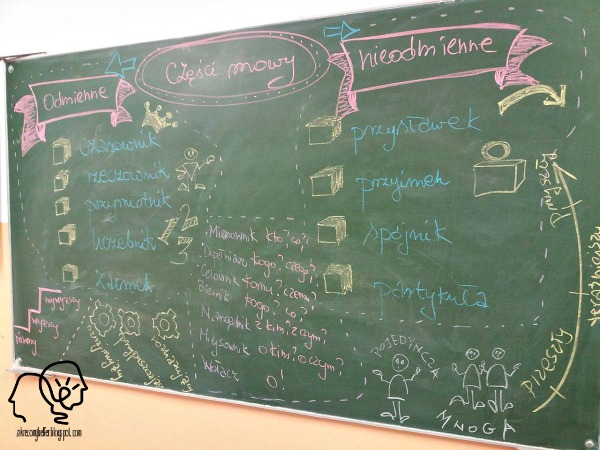 Części mowy
Odmienne
nieodmienne
czasownik
rzeczownik
przymiotnik
liczebnik
zaimek
1 2 3
przysłówek
przyimek
spójnik
partykuła
Mianownik kto? co?
Dopełniacz kogo? czego?
Celownik komu? czemu?
Biernik kogo? co?
Narzędnik z kim? z czym?
Miejscownik o kim? o czym?
Wołacz o!
najwyższy
wyższy
równy
POJEDYNCZA
MNOGA
przyszły
teraźniejszy
przeszły